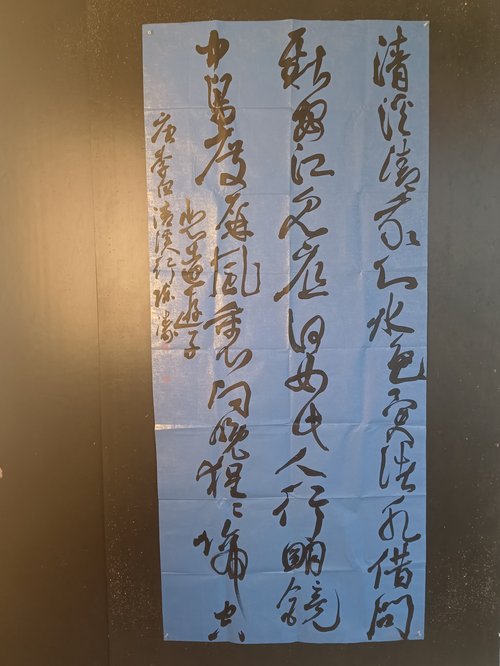 清溪清我心水色異諸水借問
新安江見底何如此人行明鏡
中鳥度屏風裏向晚猩〻啼空
悲遠遊子
唐李白清溪行